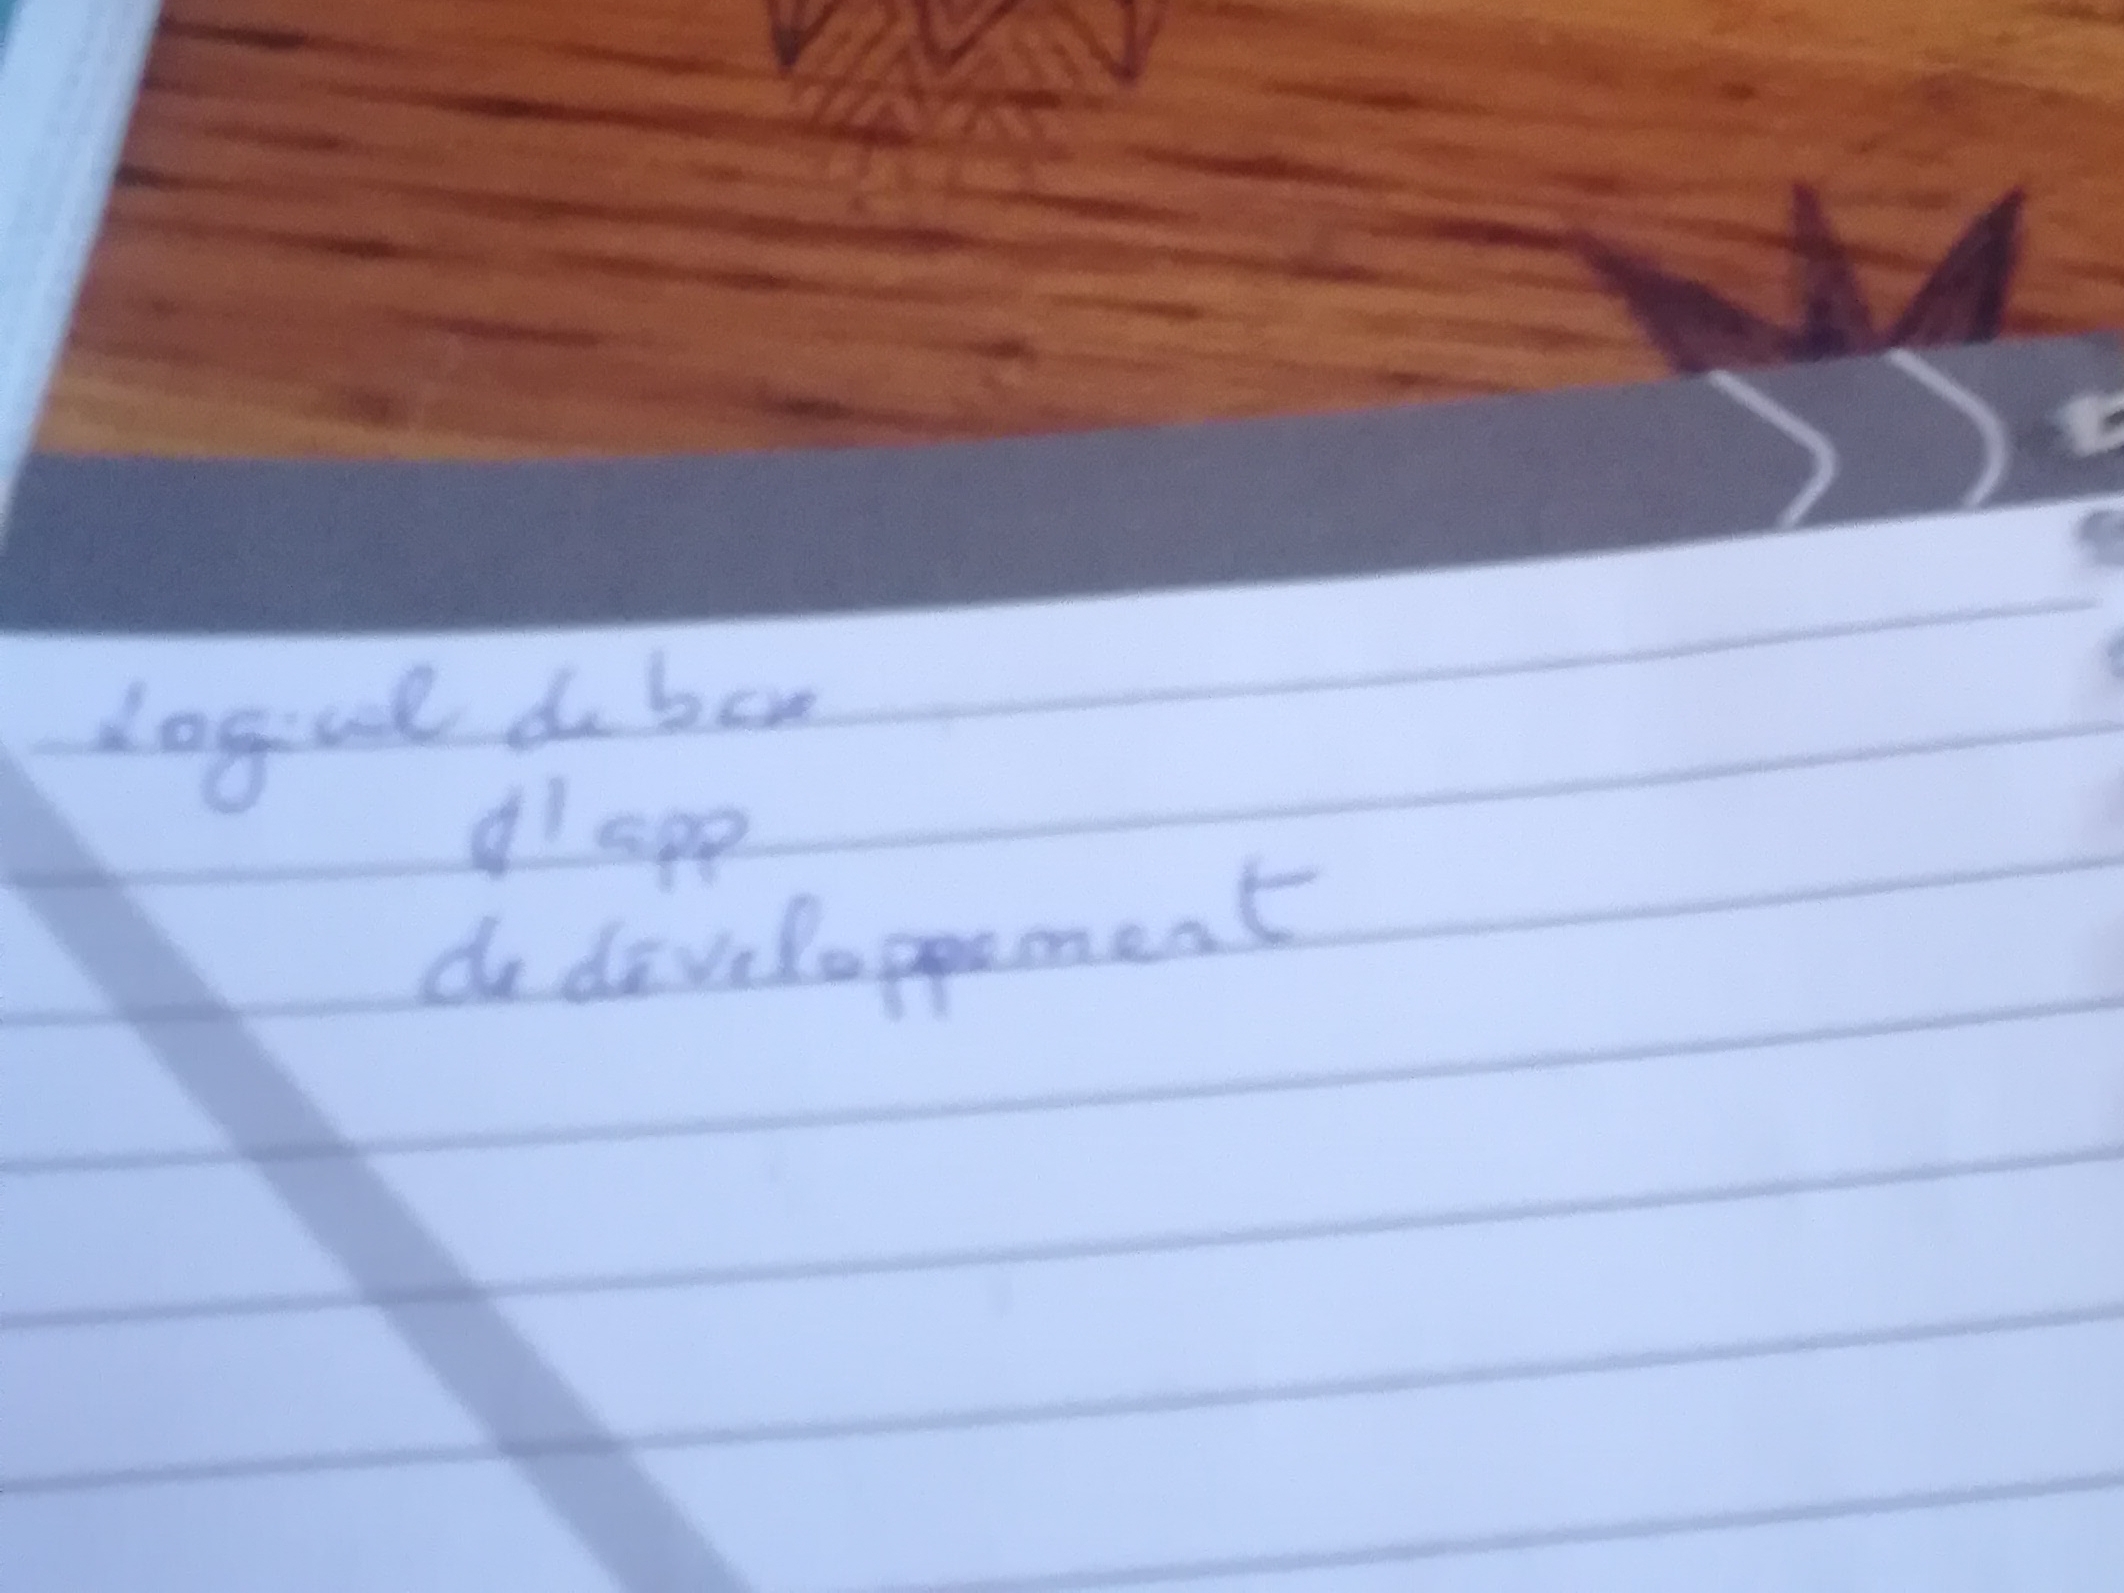 Logiciel de base
d'app
de développement